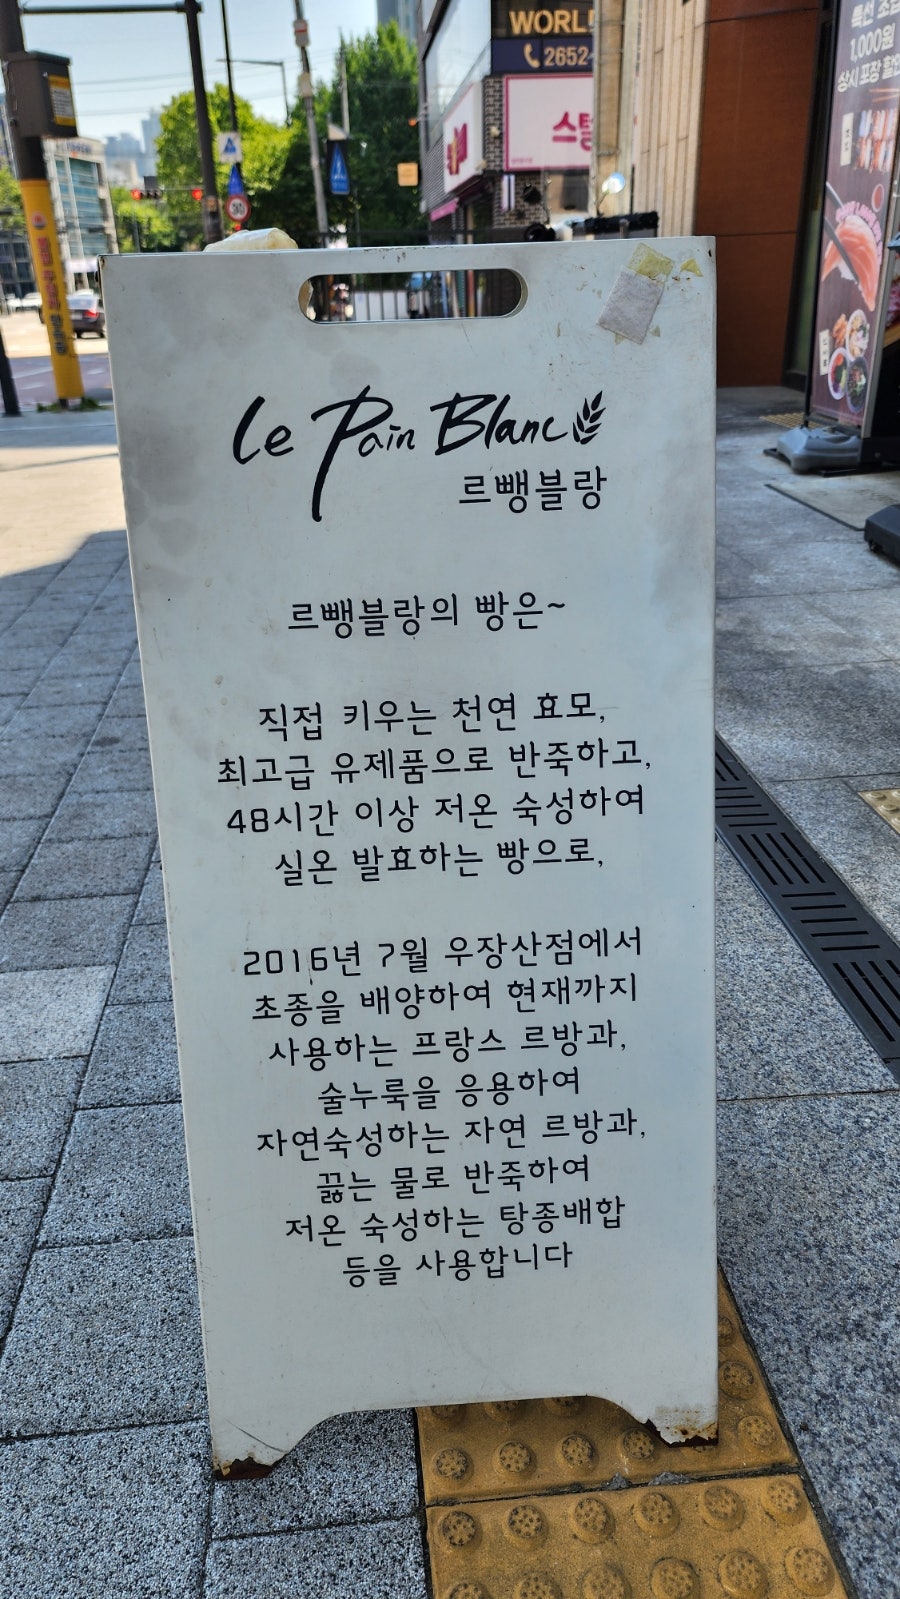 WORL
2652-
스텔
1,000원
상시 포장 할인
30
Le Pain Blanc
르뺑블랑
르뺑블랑의 빵은~
직접 키우는 천연 효모,
최고급 유제품으로 반죽하고,
48시간 이상 저온 숙성하여
실온 발효하는 빵으로,
2016년 7월 우장산점에서
초종을 배양하여 현재까지
사용하는 프랑스 르방과,
술누룩을 응용하여
자연숙성하는 자연 르방과,
끓는 물로 반죽하여
저온 숙성하는 탕종배합
등을 사용합니다